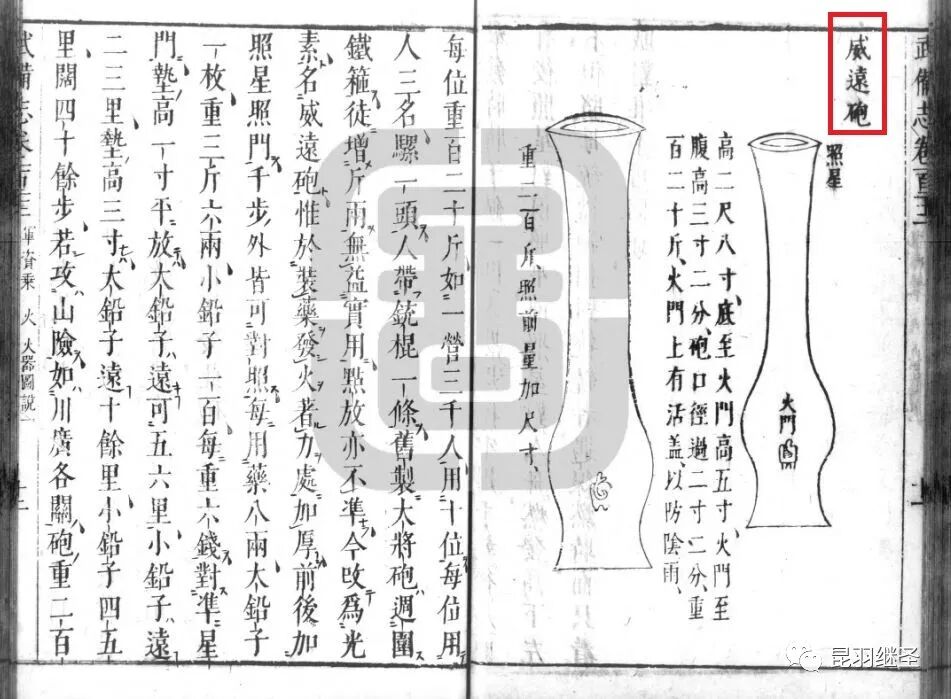 武備志卷百三
威遠砲
照星
火門
高二尺八寸、底至火門高五寸、火門至
腹高三寸二分、砲口徑過二寸二分、重
百二十斤、火門上有活盖、以防陰雨、
重二百斤、照前量加尺寸、
每位重百二十斤如一營三千人用十位每位用
人三名騾一頭人帶銃棍一條舊製大將砲週圍
鐵箍徒增斤兩無益實用點放亦不準今改爲光
素名威遠砲惟於裝藥發火著力處加厚前後加
照星照門千步外皆可對照每用藥八兩大鉛子
一枚重三斤六兩小鉛子一百每重六錢對準星
門墊高一寸平放大鉛子遠可五六里小鉛子遠
二三里墊高三寸大鉛子遠十餘里小鉛子四五
里闊四十餘步若攻山險如川廣各關砲重二百
武備志卷百三 軍資乘 火 火器圖說一
昆羽继圣